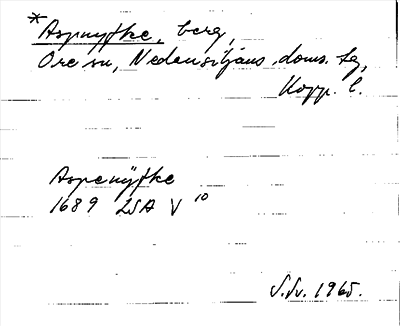 *Aspnyfke, berg,
Ore sn, Nedansiljans doms. tg,
Kopp. l.
Aspenÿfke
1689 LSA V 10
S.Sv. 1965.